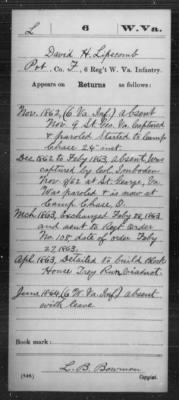 L 6 W. Va.
David H. Lipscomb
Pvt., Co. F, 6 Reg't W. Va. Infantry.
Appears on Returns as follows:
Nov. 1862, (6 Va Inf.) absent
Nov. 9 St. Geo. Va. Captured
& paroled. Started to Camp
Chase 24" inst.
Dec. 1862 to Feby 1863, absent. Was
captured by Col. Imboden
Nov. 9/62 at St. George, Va.
Was paroled & is now at
Camp Chase O.
Mch. 1863, Exchanged Feby 28, 1863
and sent to Regt. order
No. 108 date of order Feby
27, 1863.
Apl. 1863, Detailed to build Block
House Trey Run Viaduct.
June 1864, (6 W Va Inf.) absent
with leave
Book mark:
L. B. Bowman
(546) Copyist.